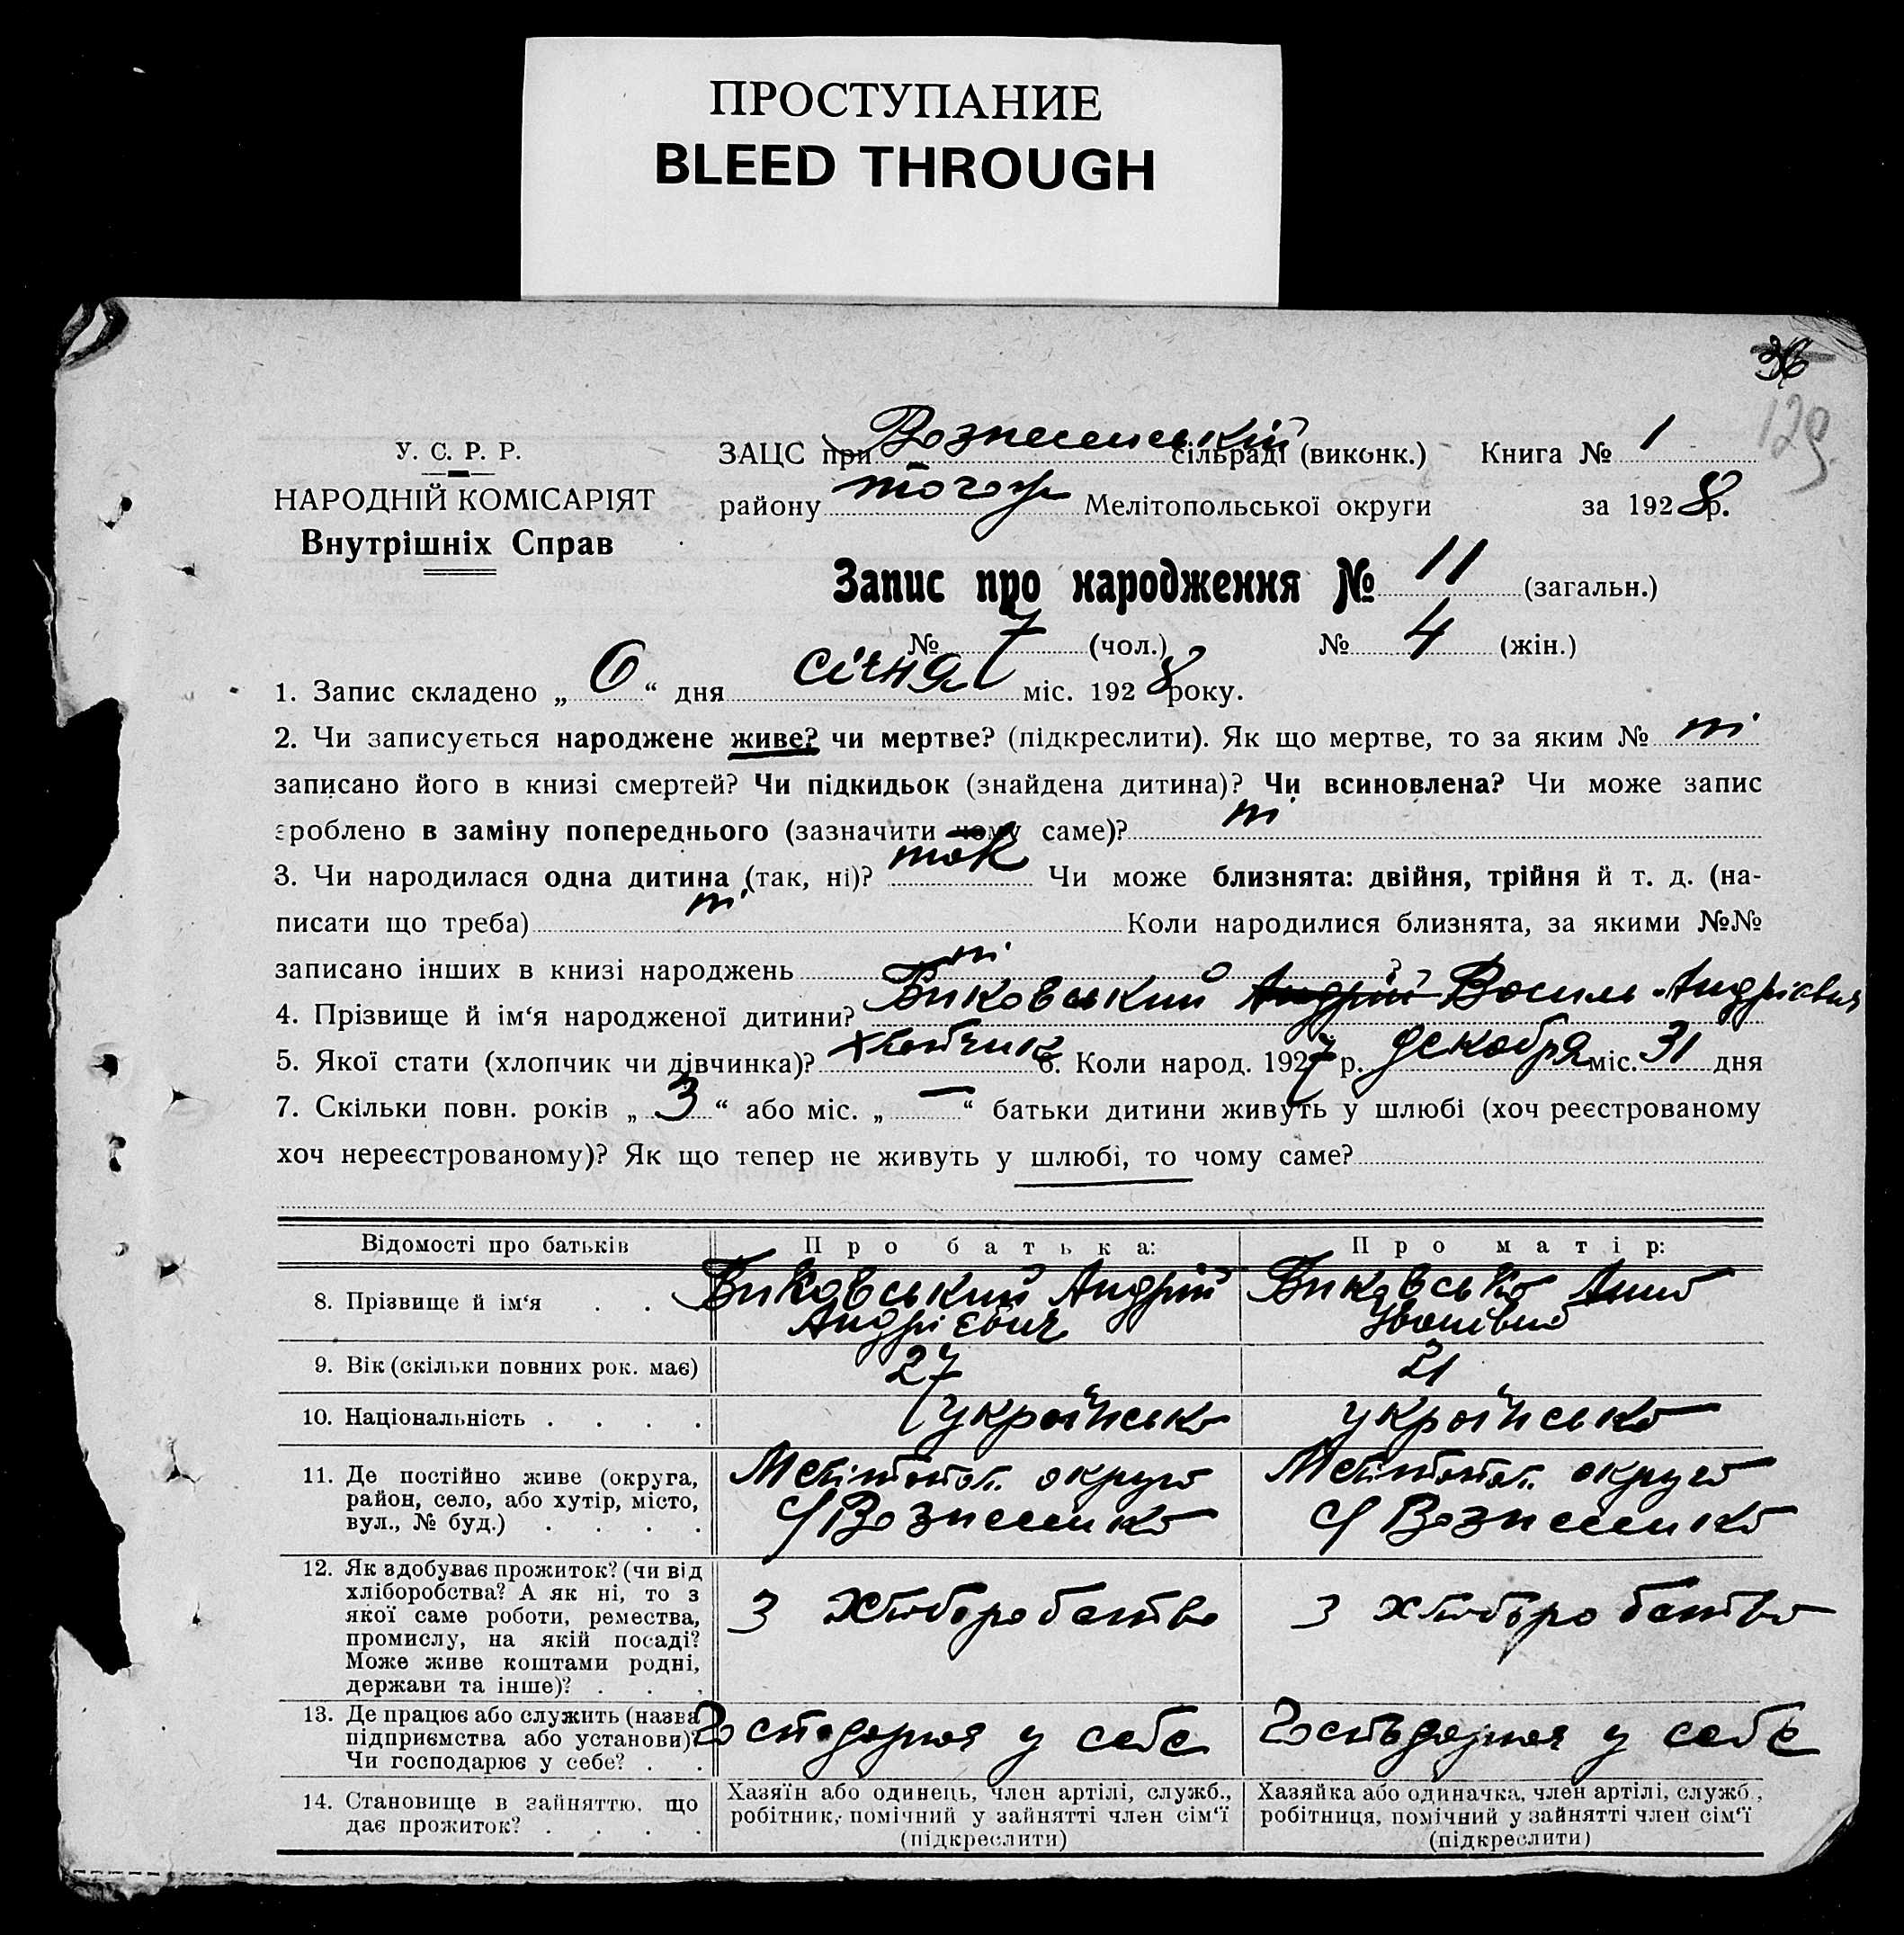 ПРОСТУПАНИЕ
BLEED THROUGH
36
129
У. С. Р. Р.
НАРОДНІЙ КОМІСАРІЯТ
Внутрішніх Справ
ЗАЦС при Вознесенській сільраді (виконк.) Книга № 1
району Мелітопольської округи за 1928 р.
Запис про народження № 11 (загальн.)
№ 7 (чол.) № 4 (жін.)
1. Запис складено „ 6 “ дня січня міс. 1928 року.
2. Чи записується народжене живе? чи мертве? (підкреслити). Як що мертве, то за яким № ні
записано його в книзі смертей? Чи підкидьок (знайдена дитина)? Чи всиновлена? Чи може запис
зроблено в заміну попереднього (зазначити чому саме)? ні
3. Чи народилася одна дитина (так, ні)? так Чи може близнята: двійня, трійня й т. д. (на-
писати що треба) ні Коли народилися близнята, за якими №№
записано інших в книзі народжень ні ?
4. Прізвище й ім‘я народженої дитини? Биковський Андрій Василь Андрієвич
5. Якої стати (хлопчик чи дівчинка)? хлопчик 6. Коли народ. 1927 р. декабря міс. 31 дня
7. Скільки повн. років „ 3 “ або міс. „ — “ батьки дитини живуть у шлюбі (хоч реєстрованому
хоч нереєстрованому)? Як що тепер не живуть у шлюбі, то чому саме?
Відомості про батьків Про батька: Про матір:
8. Прізвище й ім‘я . . Биковський Андрій Андрієвич Биковська Анна Іванівна
9. Вік (скільки повних рок. має) 27 21
10. Національність . . . . українська українська
11. Де постійно живе (округа,
район, село, або хутір, місто,
вул., № буд.) . . . .
Мелітопол. округа
с/ Вознесенка
Мелітопол. округа
с/ Вознесенка
12. Як здобуває прожиток? (чи від
хліборобства? А як ні, то з
якої саме роботи, ремества,
промислу, на якій посаді?
Може живе коштами родні,
держави та інше)? . . .
З хліборобства
З хліборобства
13. Де працює або служить (назва
підприємства або установи)?
Чи господарює у себе? . .
Господарює у себе
Господарює у себе
14. Становище в зайняттю, що
дає прожиток? . . . .
Хазяїн або одинець, член артілі, служб.,
робітник, помічний у зайнятті член сім‘ї
(підкреслити)
Хазяйка або одиначка, член артілі, служб.,
робітниця, помічний у зайнятті член сім‘ї
(підкреслити)